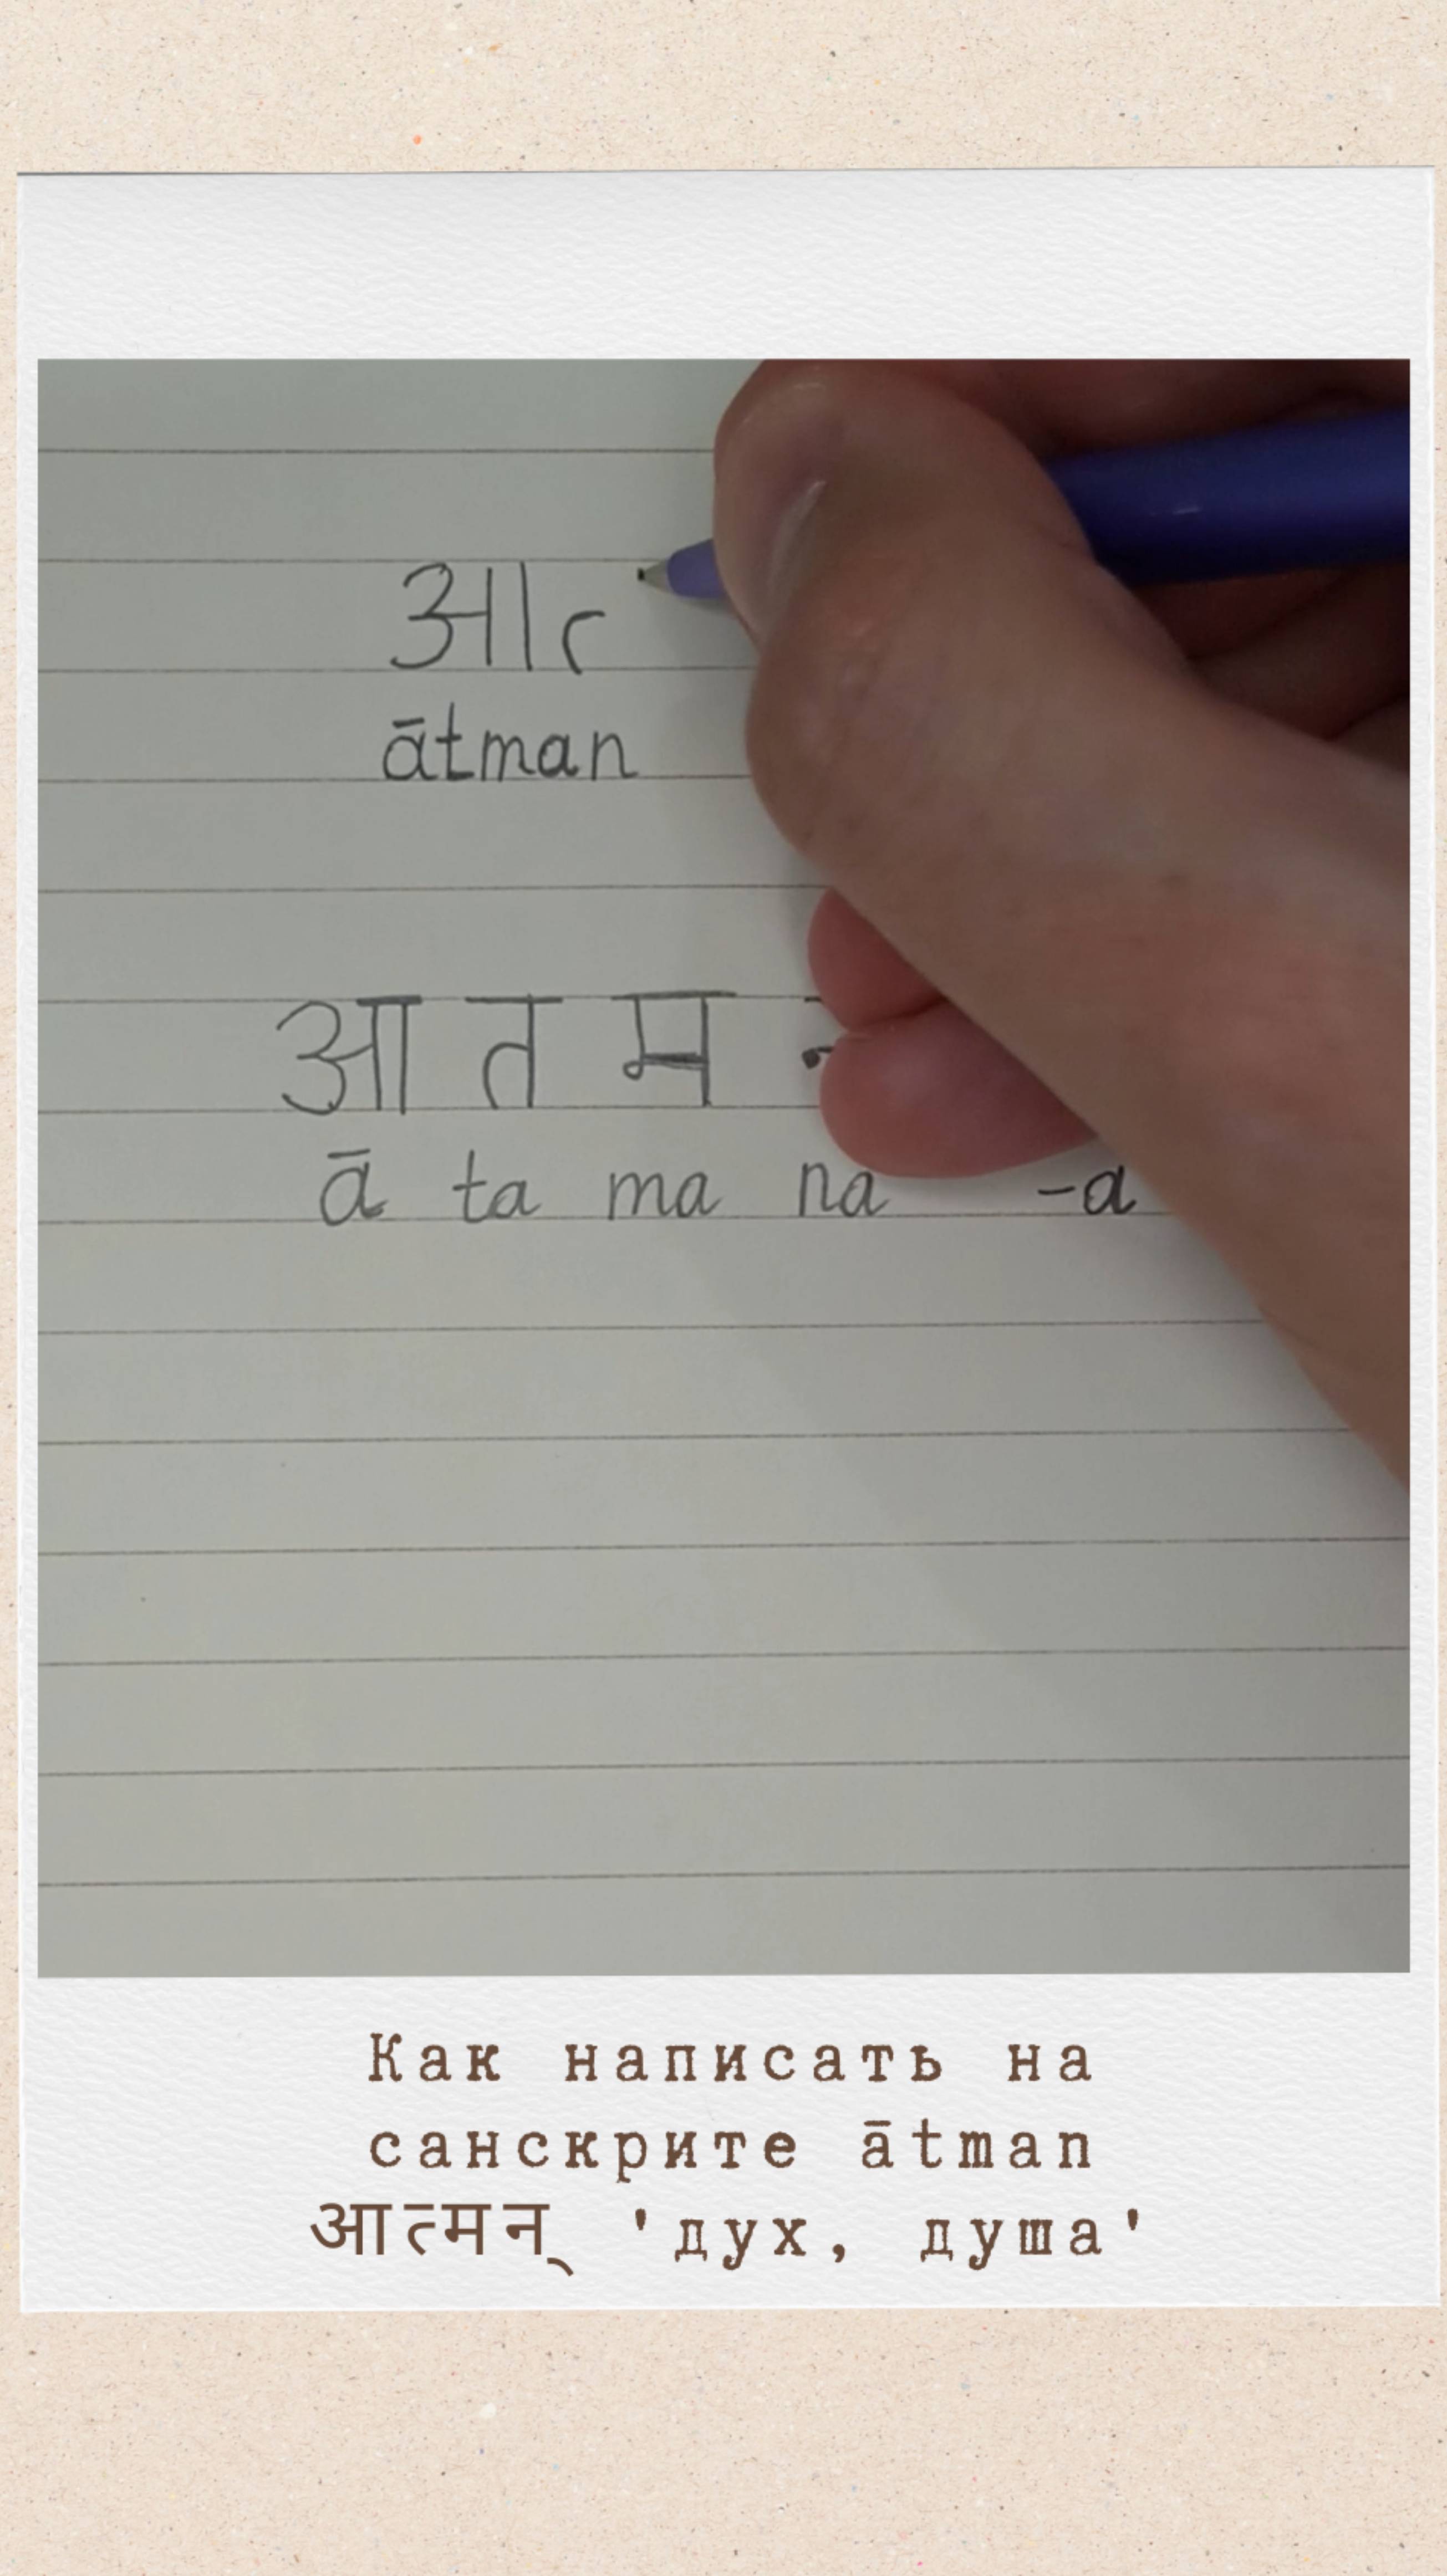 आ
ātman
आ त म
ā ta ma na -a
Как написать на
санскрите ātman
आत्मन् 'дух, душа'